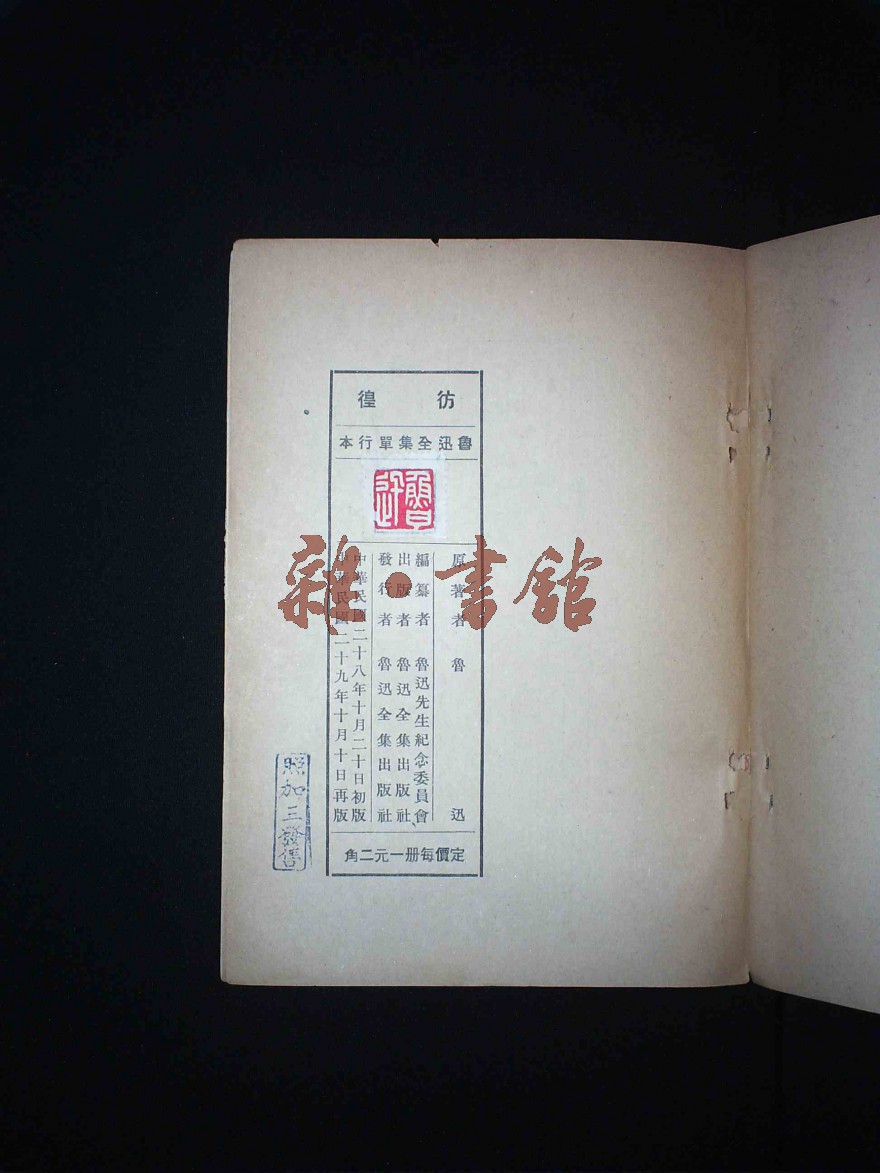 彷徨
魯迅全集單行本
魯迅
原著者 魯迅
編纂者 魯迅先生紀念委員會
出版者 魯迅全集出版社
發行者 魯迅全集出版社
中華民國二十八年十月二十日初版
中華民國二十九年十月十日再版
定價每册一元二角
照加三發售
雜·書館